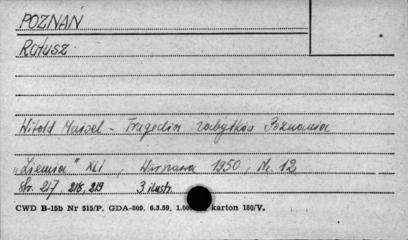 POZNAŃ
Ratusz
Witold Maisel - Tragedia zabytków Poznania
"Ziemia" XLI, Warszawa 1950, Nr. 12,
Str. 217, 218, 219 3 ilustr.
CWD B-15b Nr 515/P. GDA-809. 6.3.59. karton 180/V.